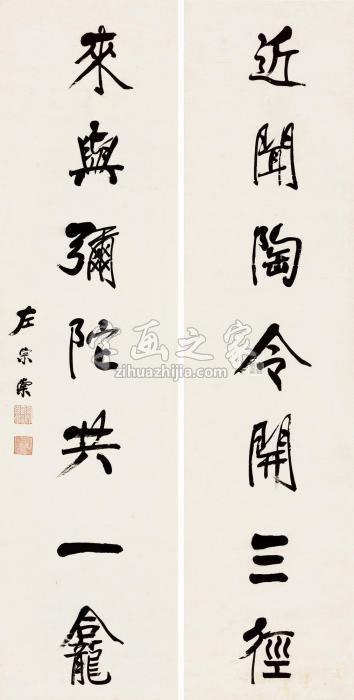 近聞陶令開三徑
來與彌陀共一龕
左宗棠
字画之家
zihuazhijia.com